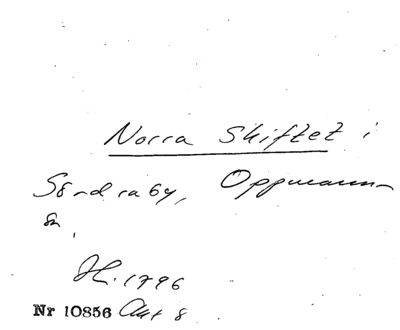 Norra Skiftet i
Södraby, Oppmanna
sn
H. 1796
Nr 10856 Akt 8